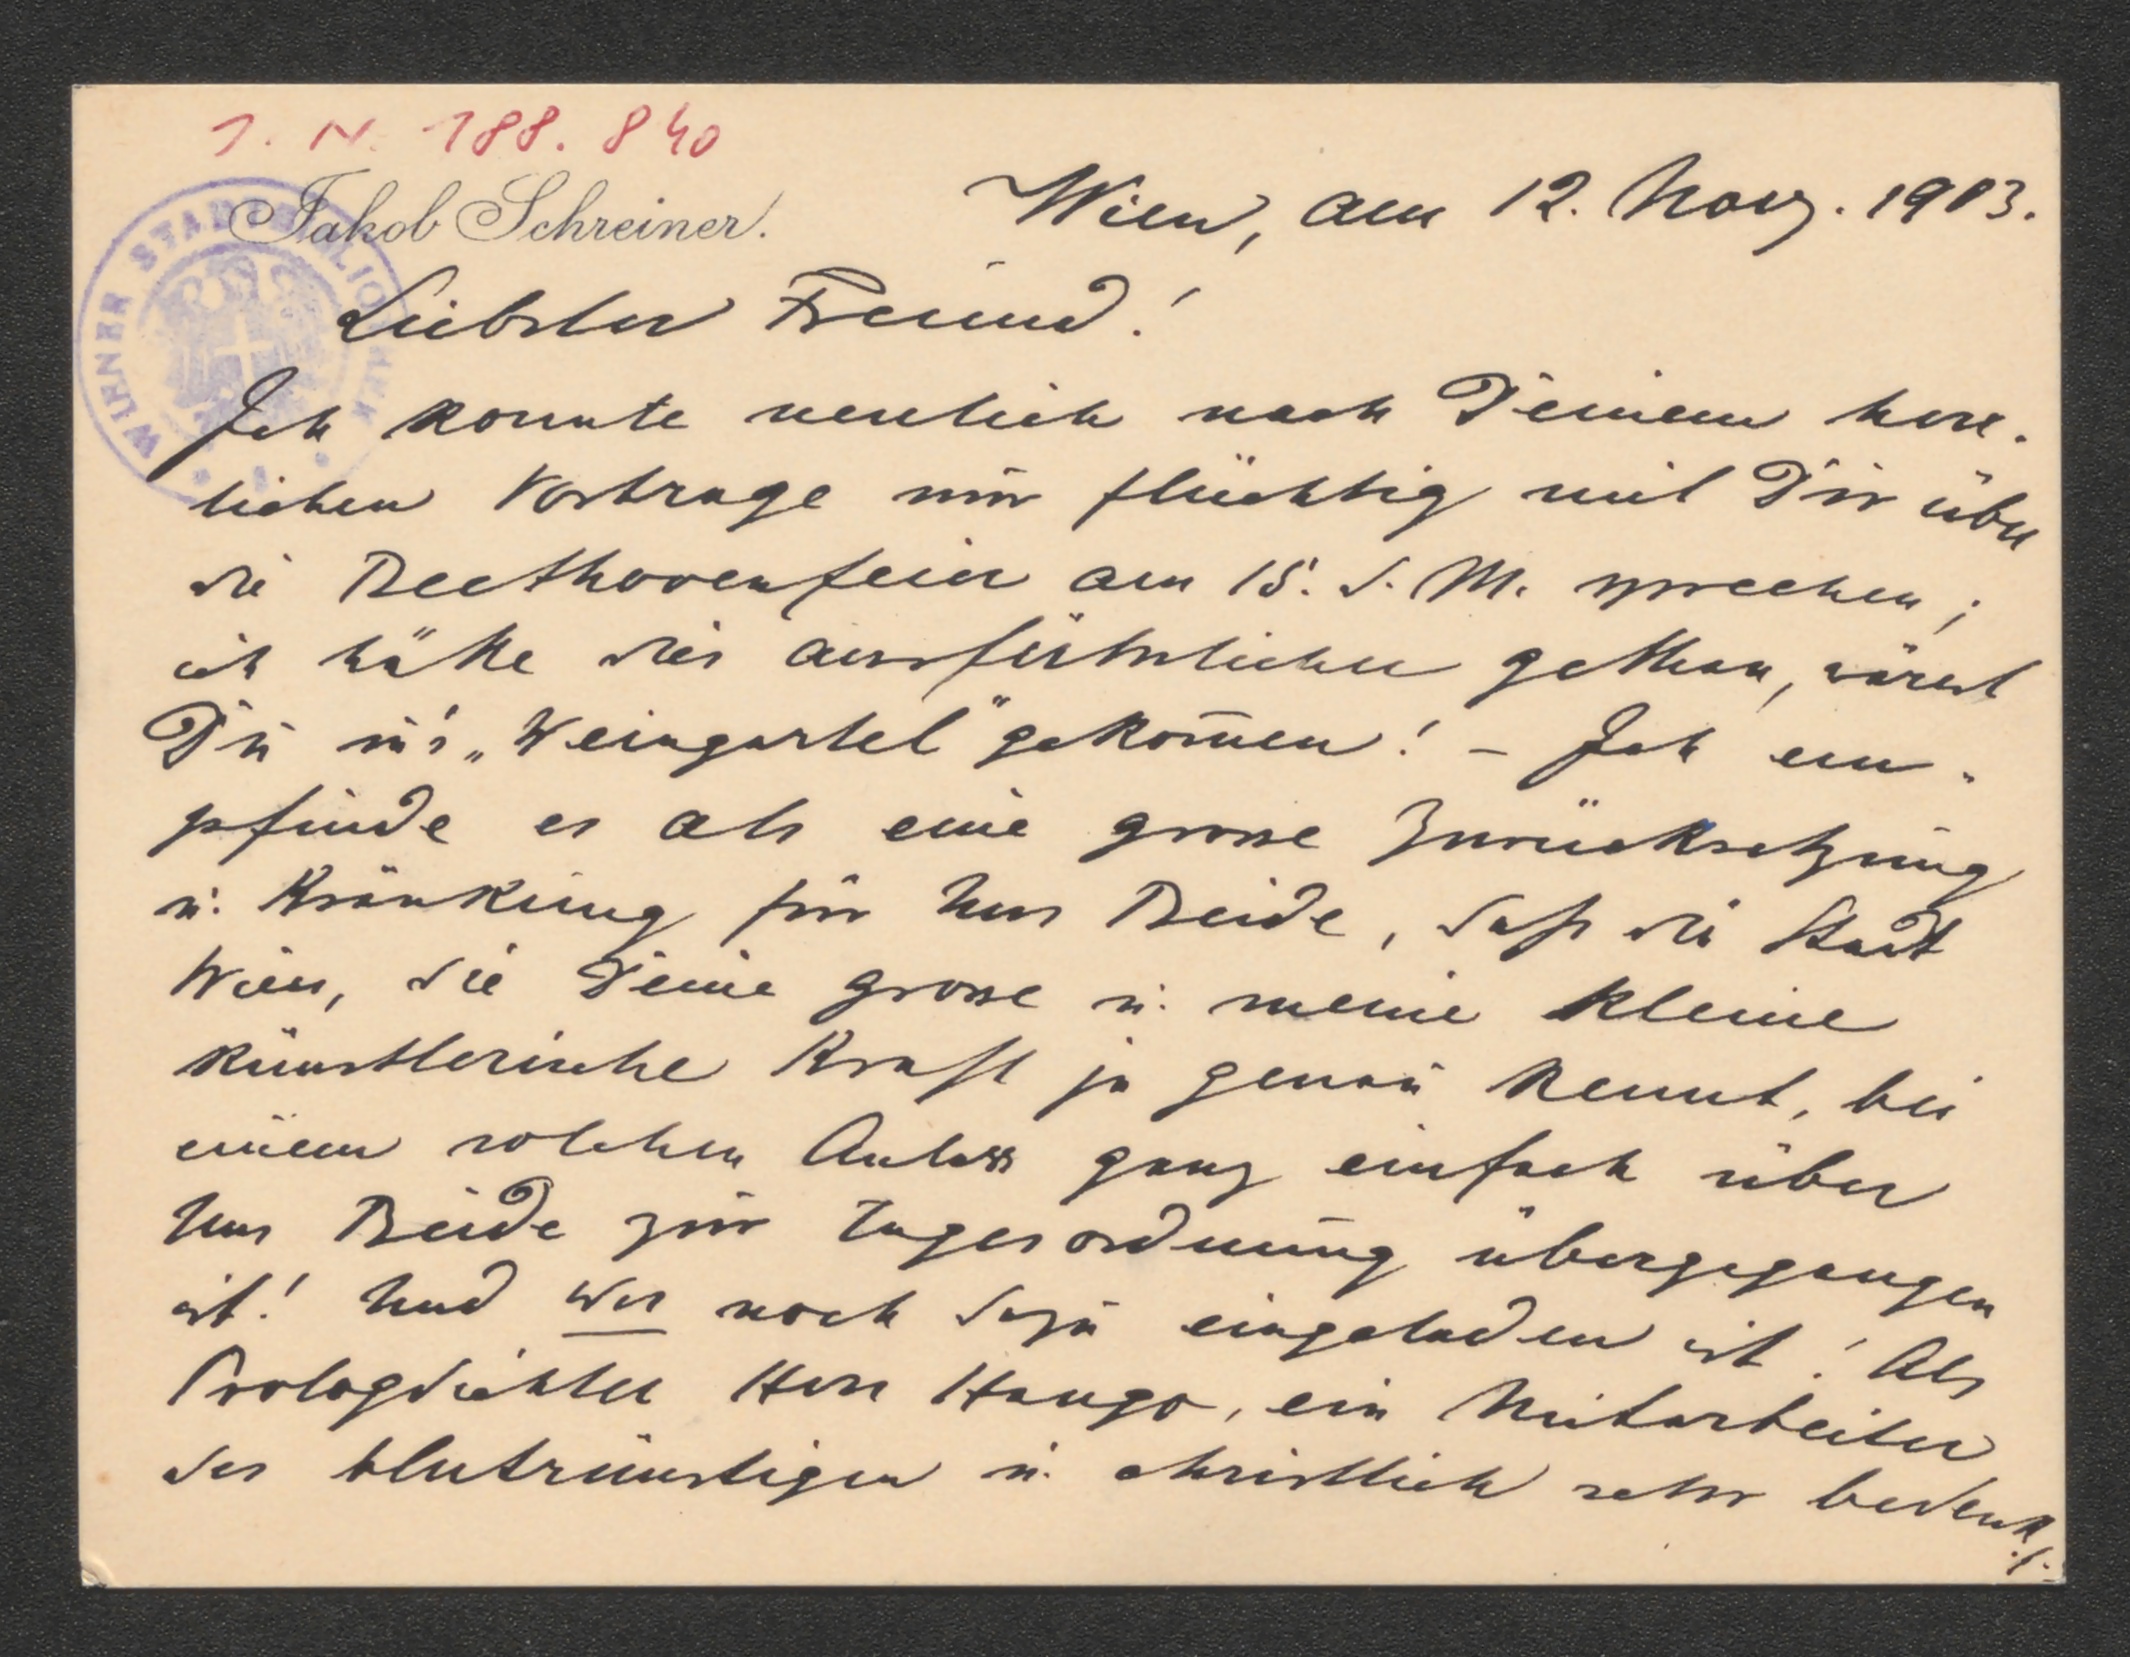 J. N. 188.840
Jakob Schreiner.
WIENER STADTBIBLIOTHEK
Wien, am 12. März. 1903.
Liebster Freund!
Ich konnte neulich nach Deinem herr-
lichen Vortrage nur flüchtig mit Dir über
die Beethovenfeier am 15. d. M. sprechen;
ich hätte dies ausführlicher gethan, wärest
Du in's „Weingartel" gekom̄en! – Ich em-
pfinde es als eine grosse Zurücksetzung
u. Kränkung für Uns Beide, daß die Stadt
Wien, die Deine grosse u. meine kleine
künstlerische Kraft ja genau kennt, bei
einem solchen Anlass ganz einfach über
Uns Beide zur Tagesordnung übergegangen
ist! Und wer noch dazu eingeladen ist! Als
Prologdichter Herr Hango, ein Mitarbeiter
des blutrünstigen u. christlich sehr bedenk
./.